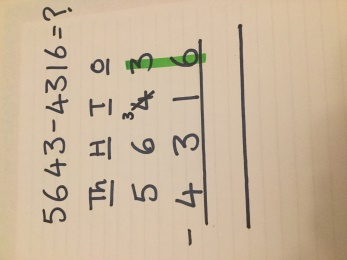 5643-4316=?
Th H T O
5 6 ³4 3
- 4 3 1 6